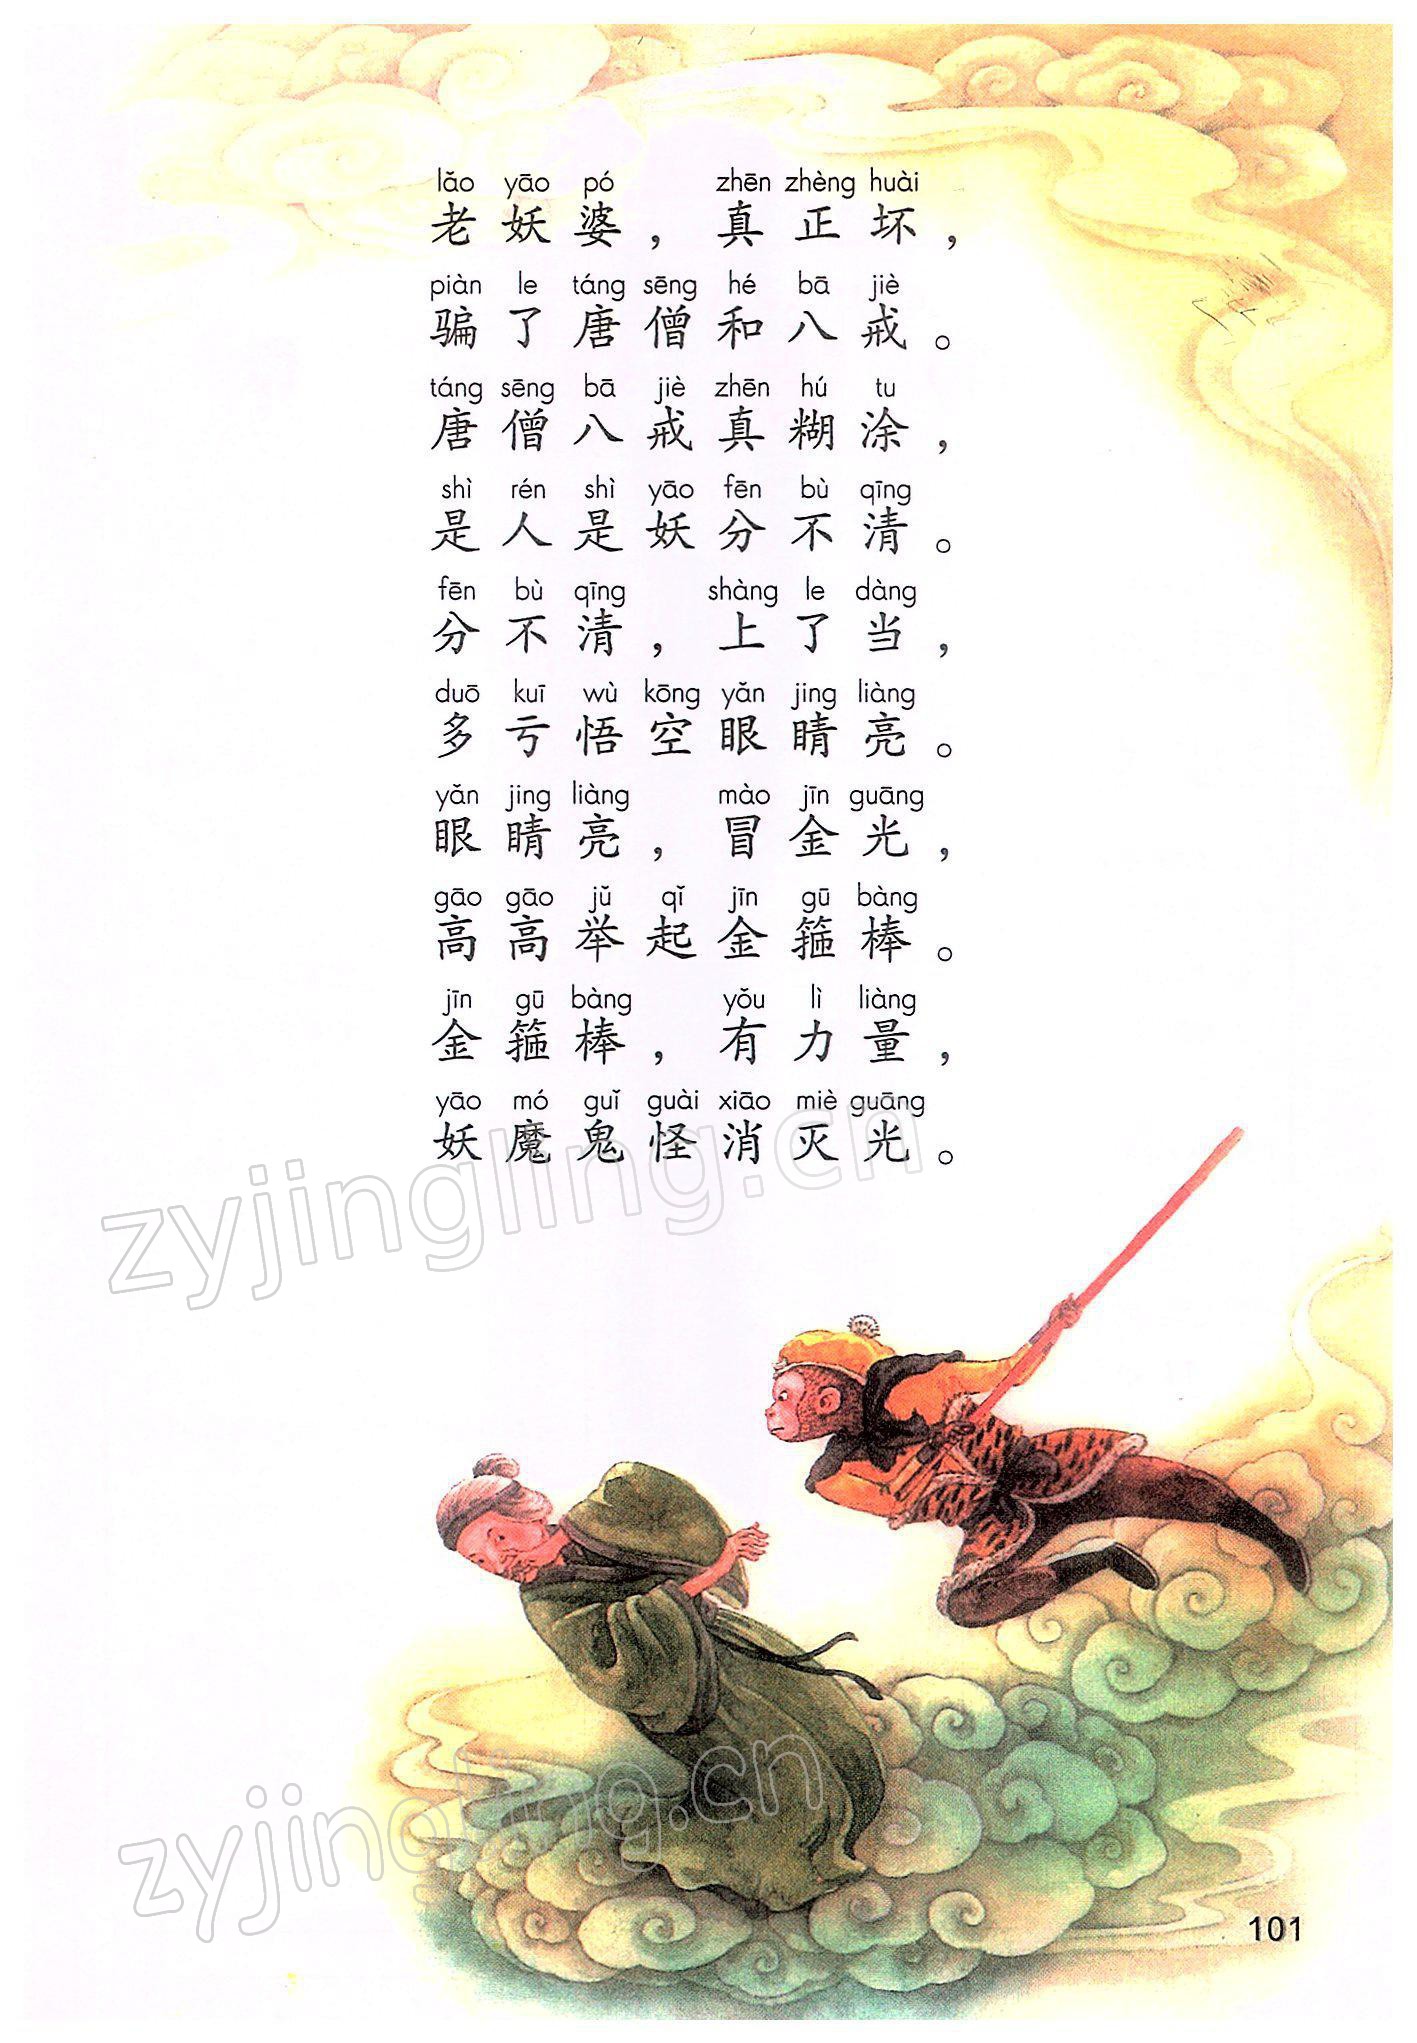 lǎo yāo pó zhēn zhèng huài
老妖婆，真正坏，
piàn le táng sēng hé bā jiè
骗了唐僧和八戒。
táng sēng bā jiè zhēn hú tu
唐僧八戒真糊涂，
shì rén shì yāo fēn bù qīng
是人是妖分不清。
fēn bù qīng shàng le dàng
分不清，上了当，
duō kuī wù kōng yǎn jing liàng
多亏悟空眼睛亮。
yǎn jing liàng mào jīn guāng
眼睛亮，冒金光，
gāo gāo jǔ qǐ jīn gū bàng
高高举起金箍棒。
jīn gū bàng yǒu lì liàng
金箍棒，有力量，
yāo mó guǐ guài xiāo miè guāng
妖魔鬼怪消灭光。
zyjingling.cn
zyjingling.cn
101